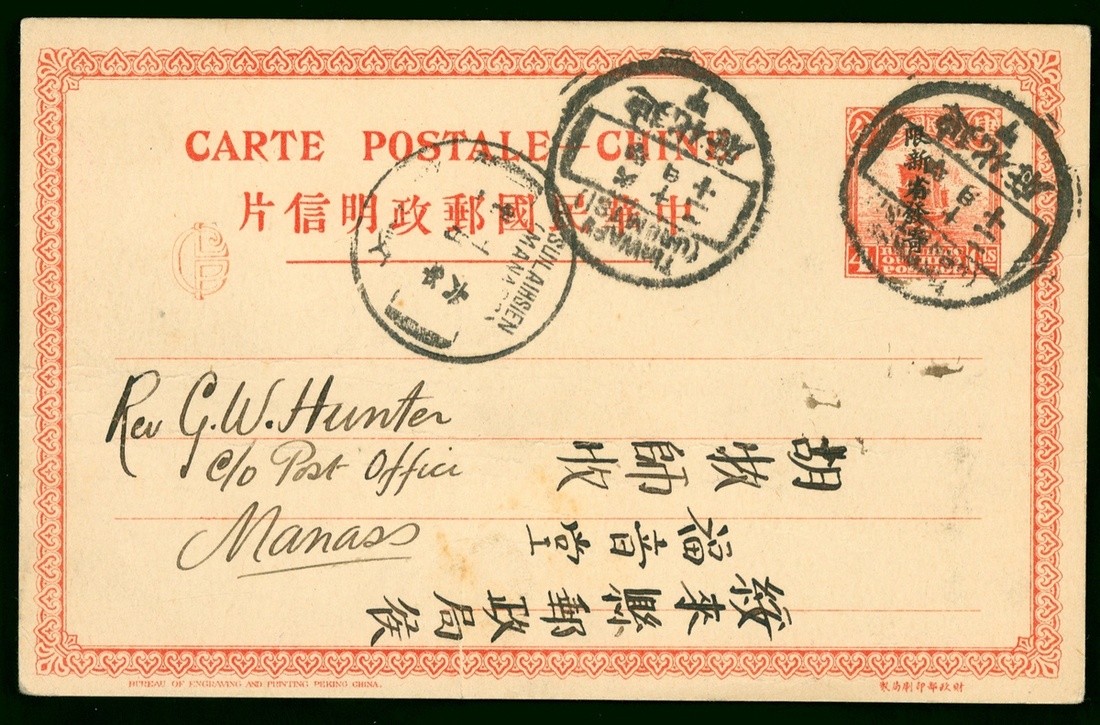 CARTE POSTALE—CHINE
中華民國郵政明信片
限新省發寄
4
SUILAIHSIEN
(MANASS)
TIHWAFU
(URUMTSI)
Rev G. W. Hunter
c/o Post Office
Manass
胡牧師收
福音堂
綏來縣郵政局侯
BUREAU OF ENGRAVING AND PRINTING PEKING CHINA.
財政部印刷局製